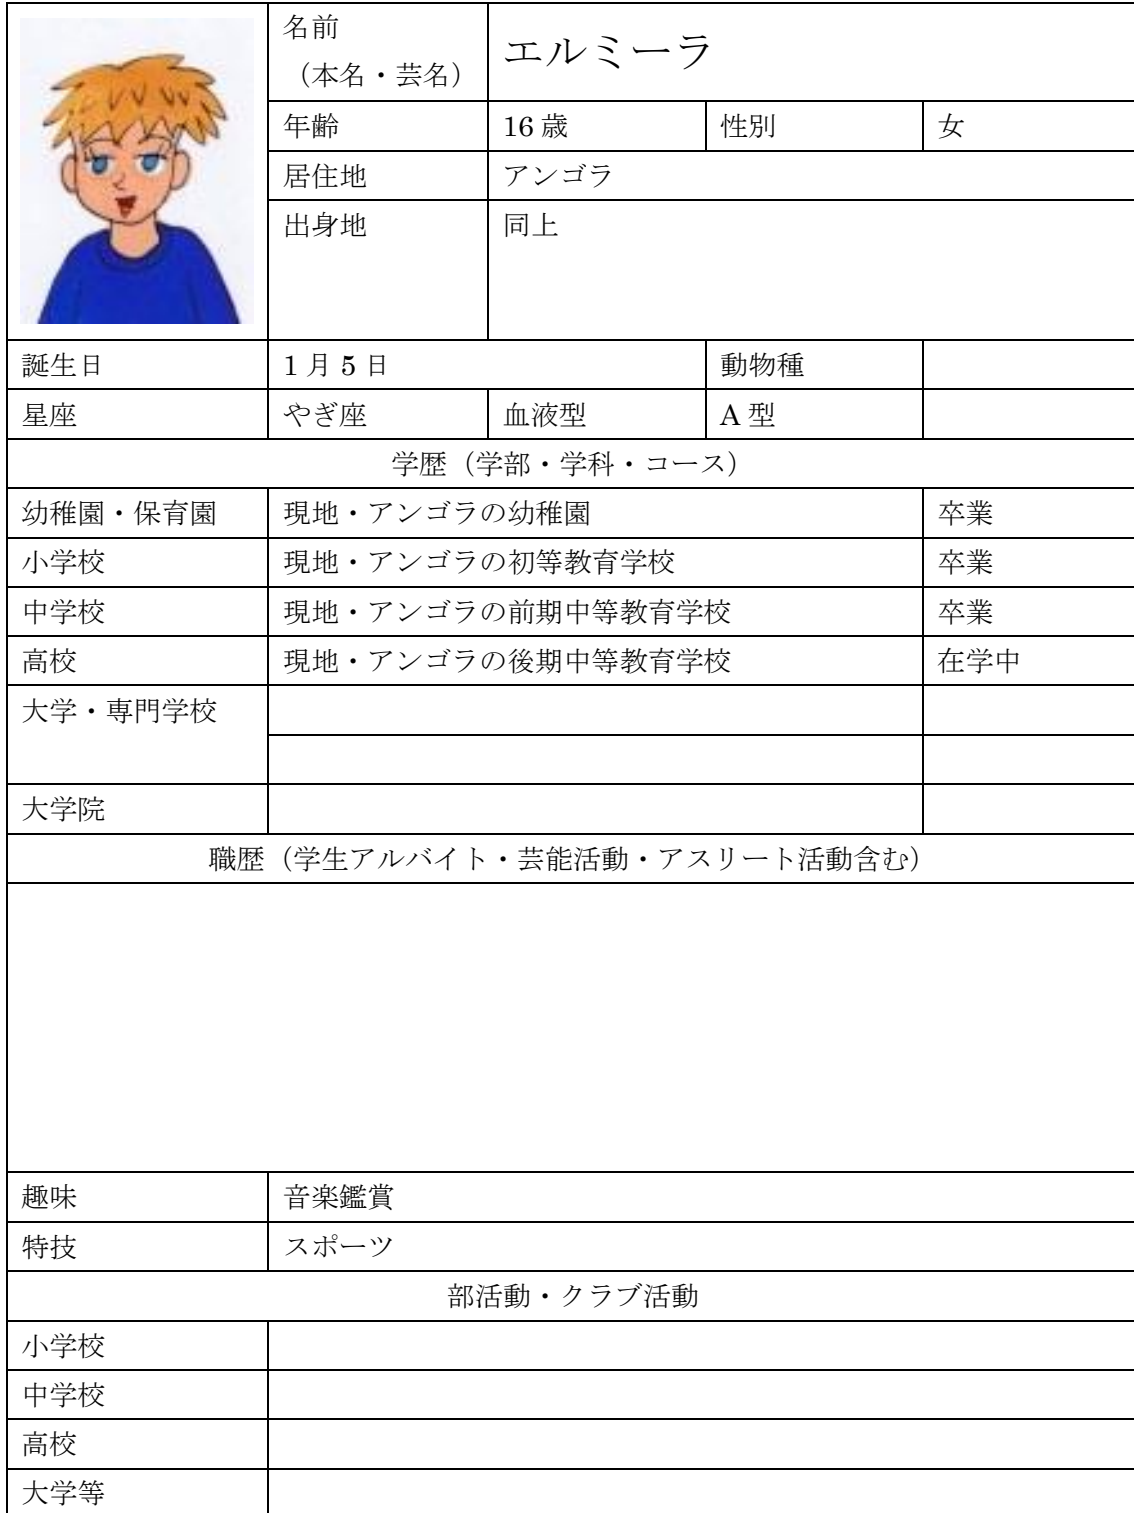 名前
（本名・芸名）
エルミーラ
年齢 16歳 性別 女
居住地 アンゴラ
出身地 同上
誕生日 1月5日 動物種
星座 やぎ座 血液型 A型
学歴（学部・学科・コース）
幼稚園・保育園 現地・アンゴラの幼稚園 卒業
小学校 現地・アンゴラの初等教育学校 卒業
中学校 現地・アンゴラの前期中等教育学校 卒業
高校 現地・アンゴラの後期中等教育学校 在学中
大学・専門学校
大学院
職歴（学生アルバイト・芸能活動・アスリート活動含む）
趣味 音楽鑑賞
特技 スポーツ
部活動・クラブ活動
小学校
中学校
高校
大学等